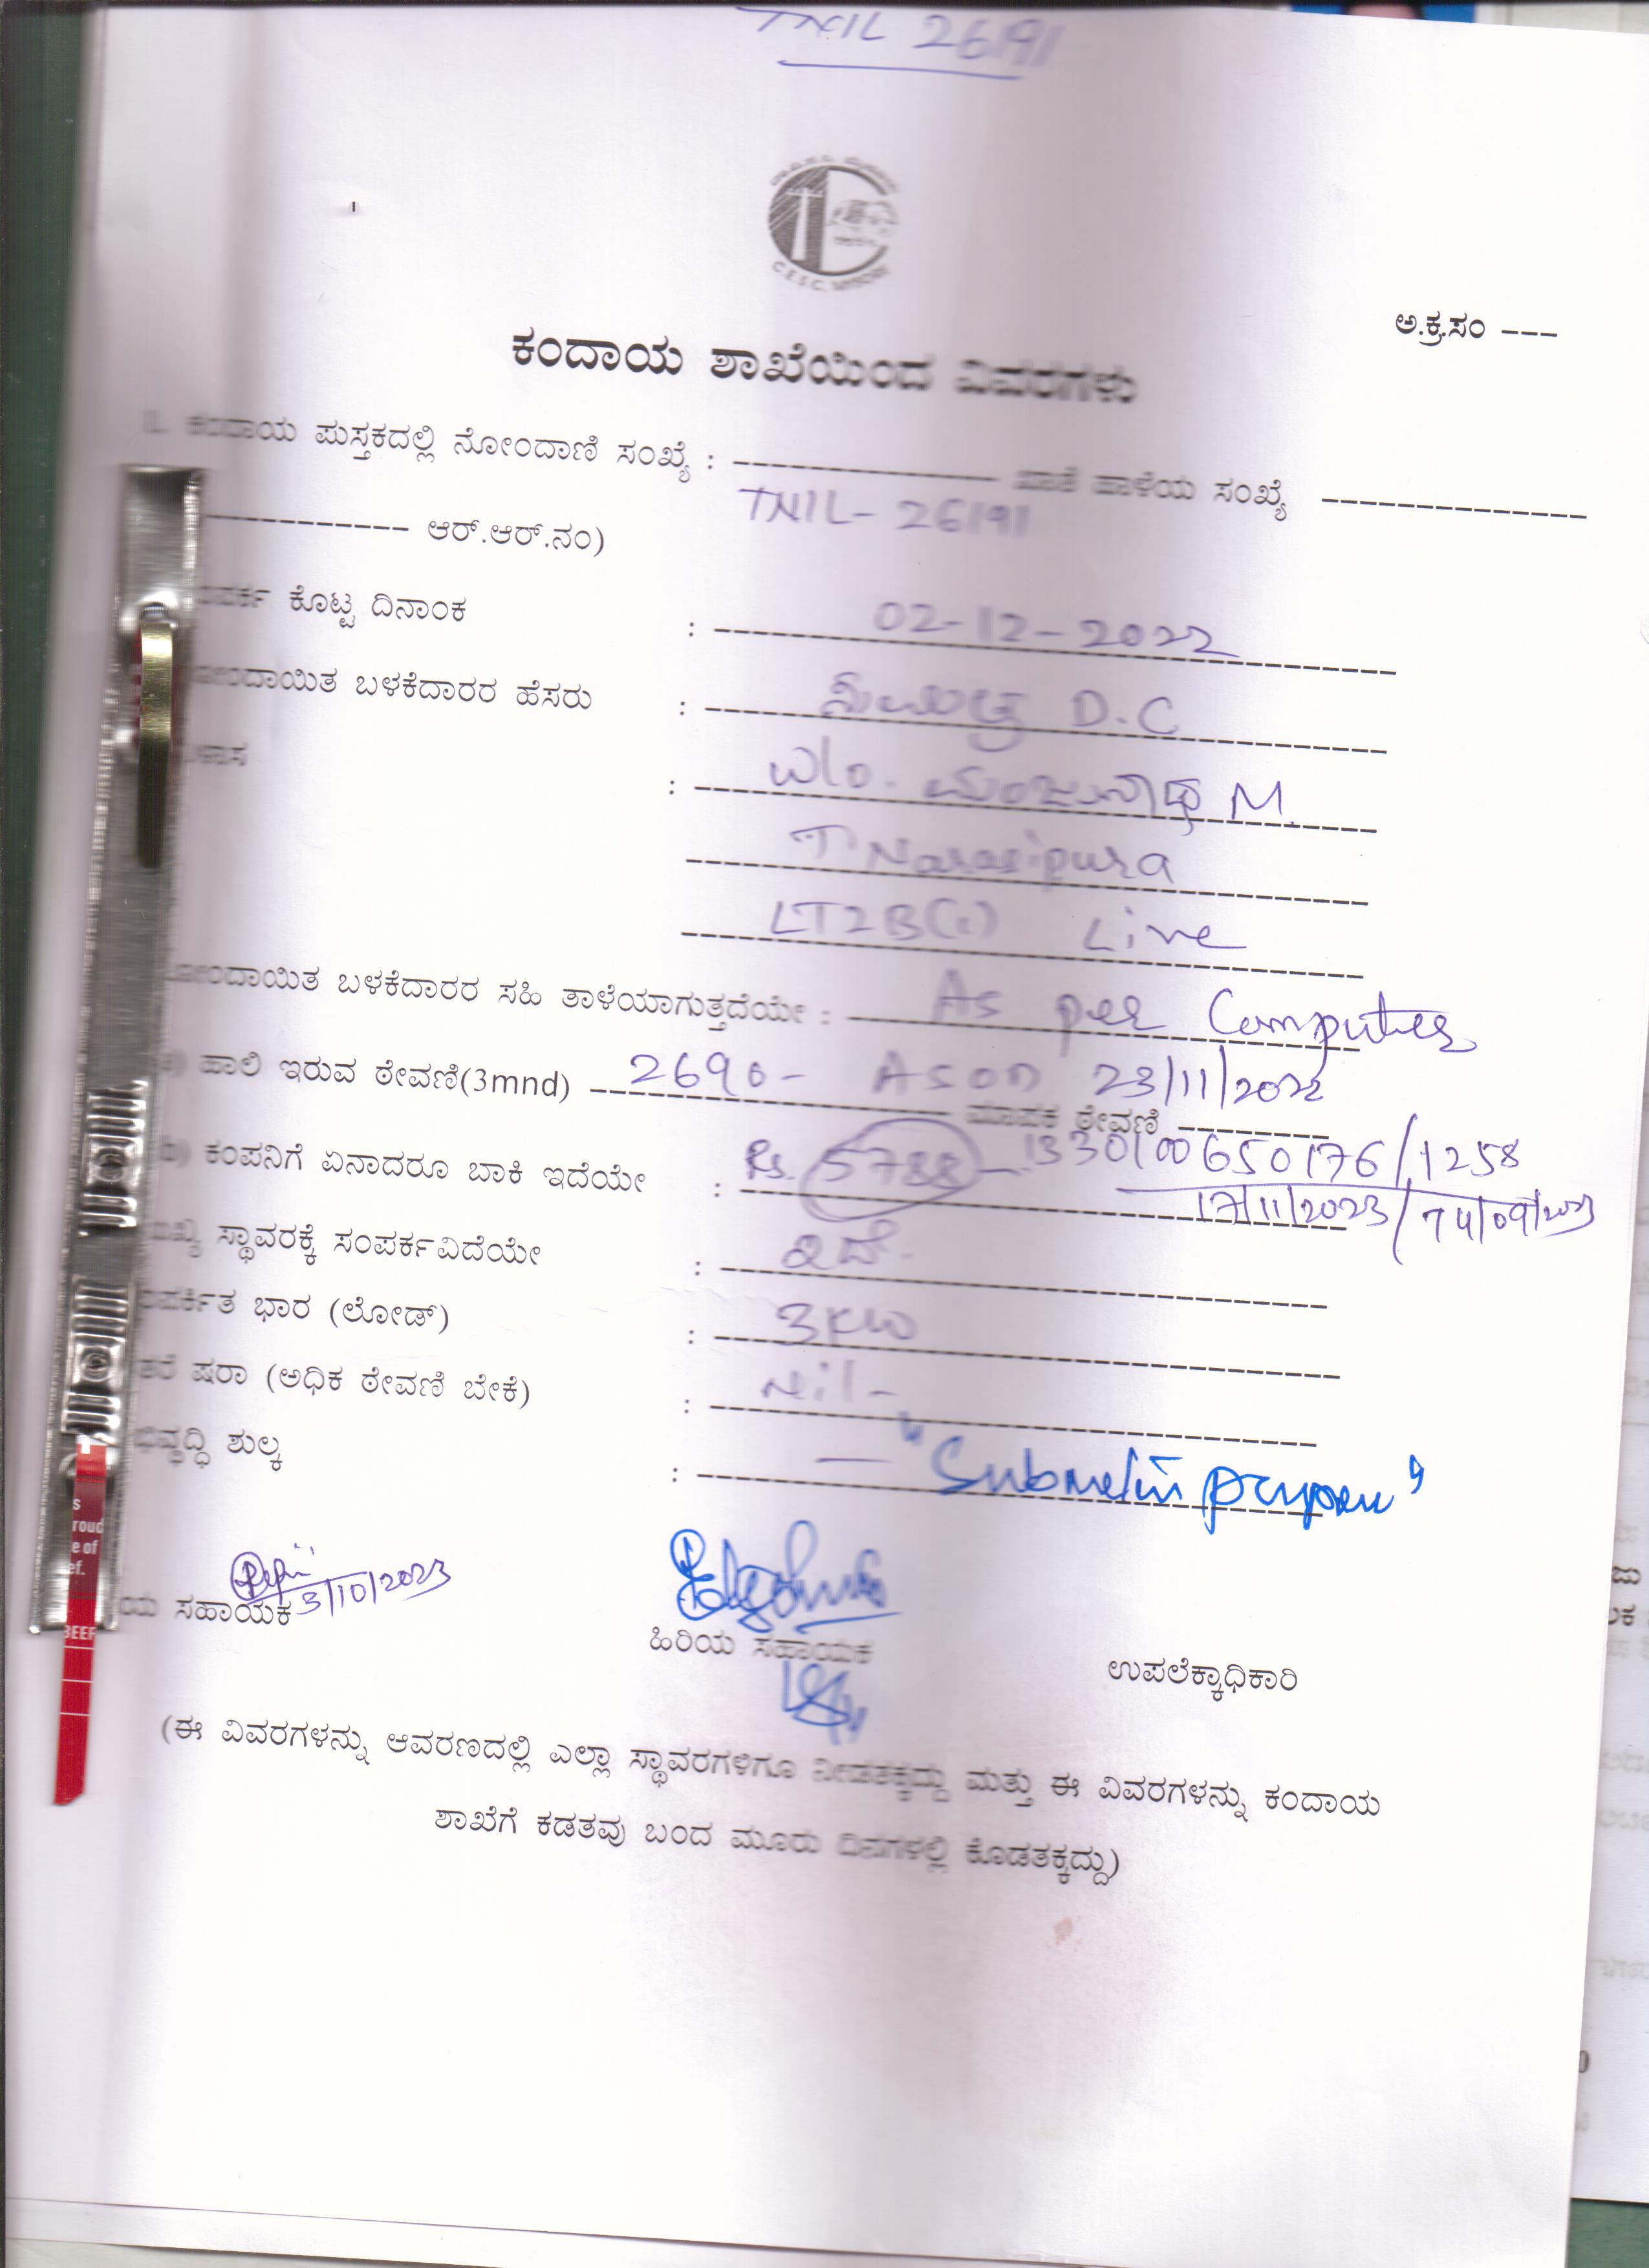 TNIL 26191
C.E.S.C. MYSORE
ಅ.ಕ್ರ.ಸಂ ---
ಕಂದಾಯ ಶಾಖೆಯಿಂದ ವಿವರಗಳು
1. ಕಂದಾಯ ಪುಸ್ತಕದಲ್ಲಿ ನೋಂದಾಣಿ ಸಂಖ್ಯೆ : -------------- ಖಾತೆ ಹಾಳೆಯ ಸಂಖ್ಯೆ --------------
----------- ಆರ್.ಆರ್.ನಂ) TNIL- 26191
ಕೊಟ್ಟ ದಿನಾಂಕ : 02-12-2022
ಬಳಕೆದಾರರ ಹೆಸರು : D.C
: W/o. ಮಂಜುನಾಥ M.
T Narasipura
LT2B(i) Live
ಬಳಕೆದಾರರ ಸಹಿ ತಾಳೆಯಾಗುತ್ತದೆಯೇ : As per Computer
a) ಹಾಲಿ ಇರುವ ಠೇವಣಿ(3mnd) 2690- AS ON 23/11/2022 ಮಾಪಕ ಠೇವಣಿ
b) ಕಂಪನಿಗೆ ಏನಾದರೂ ಬಾಕಿ ಇದೆಯೇ : Rs. 5788 - 1330/00650176/1258
17/11/2023/
ಸ್ಥಾವರಕ್ಕೆ ಸಂಪರ್ಕವಿದೆಯೇ : ಇದೆ.
ಭಾರ (ಲೋಡ್) : 3KW
ಷರಾ (ಅಧಿಕ ಠೇವಣಿ ಬೇಕೆ) : Nil-
ಶುಲ್ಕ : —
3/10/2023
ಸಹಾಯಕ
ಹಿರಿಯ ಸಹಾಯಕ
ಉಪಲೆಕ್ಕಾಧಿಕಾರಿ
(ಈ ವಿವರಗಳನ್ನು ಆವರಣದಲ್ಲಿ ಎಲ್ಲಾ ಸ್ಥಾವರಗಳಿಗೂ ನೀಡತಕ್ಕದ್ದು ಮತ್ತು ಈ ವಿವರಗಳನ್ನು ಕಂದಾಯ
ಶಾಖೆಗೆ ಕಡತವು ಬಂದ ಮೂರು ದಿನಗಳಲ್ಲಿ ಕೊಡತಕ್ಕದ್ದು)